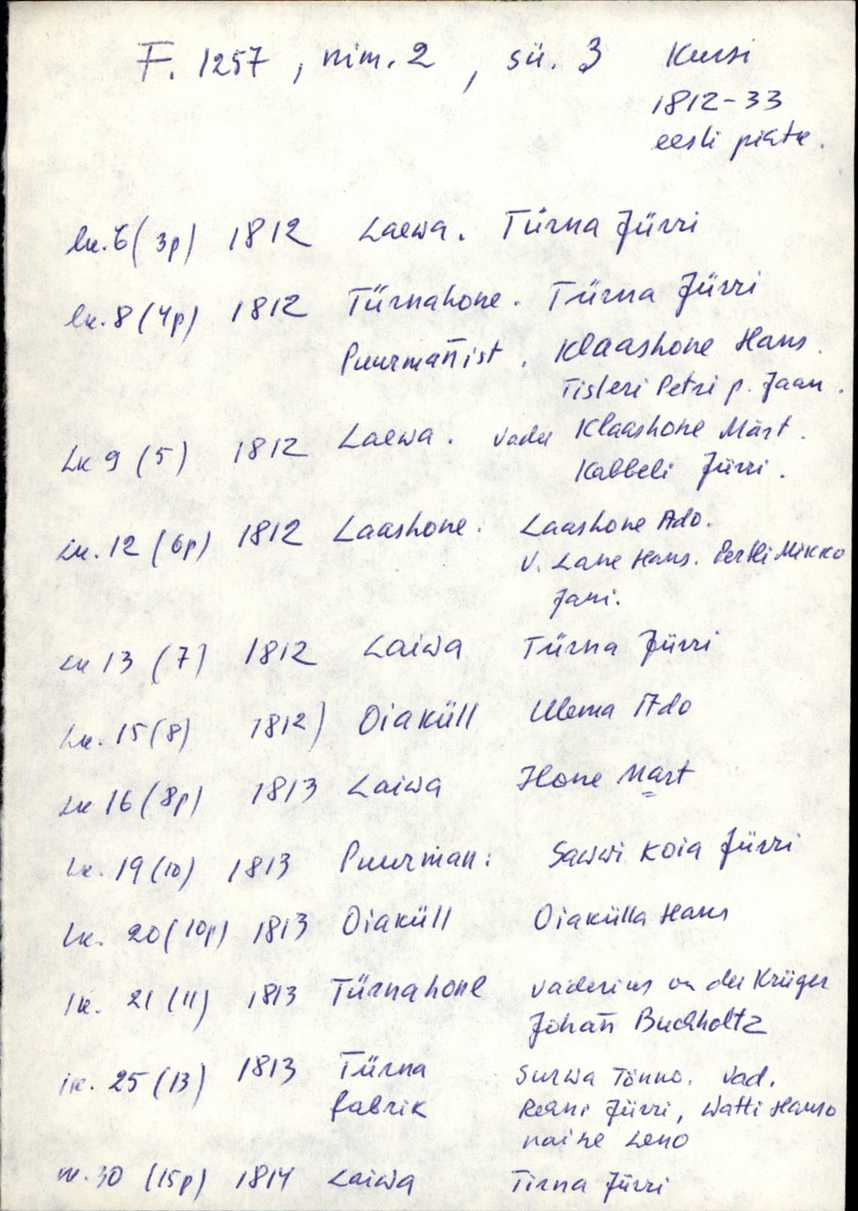 F. 1257, nim. 2, sü. 3 Kursi
1812-33
eesti
lk. 6 (3p) 1812 Laewa. Türna Jürri
lk. 8 (4p) 1812 Türnahone. Türna Jürri
Puurmañist. Klaashone Hans.
Tisleri Petri p. Jaan.
Lk 9 (5) 1812 Laewa. Klaashone Märt.
Kabbeli Jürri.
Lk. 12 (6p) 1812 Laashone. Laashone Ado.
v. Lane Hans. Mikko
Jani.
Lk 13 (7) 1812 Laiwa Türna Jürri
Lk. 15 (8) 1812) Oiaküll Ulema Ado
Lk 16 (8p) 1813 Laiwa Hone Mart
Lk. 19 (10) 1813 Puurman: Sawwi Koia Jürri
Lk. 20 (10p) 1813 Oiaküll Oiakülla Hans
lk. 21 (11) 1813 Türnahone on Krüger
Johañ Buchholtz
lk. 25 (13) 1813 Türna Surwa Tönno. Vad.
fabrik Jürri, Watti Hanso
naine Leno
lk. 30 (15p) 1814 Laiwa Tirna Jürri